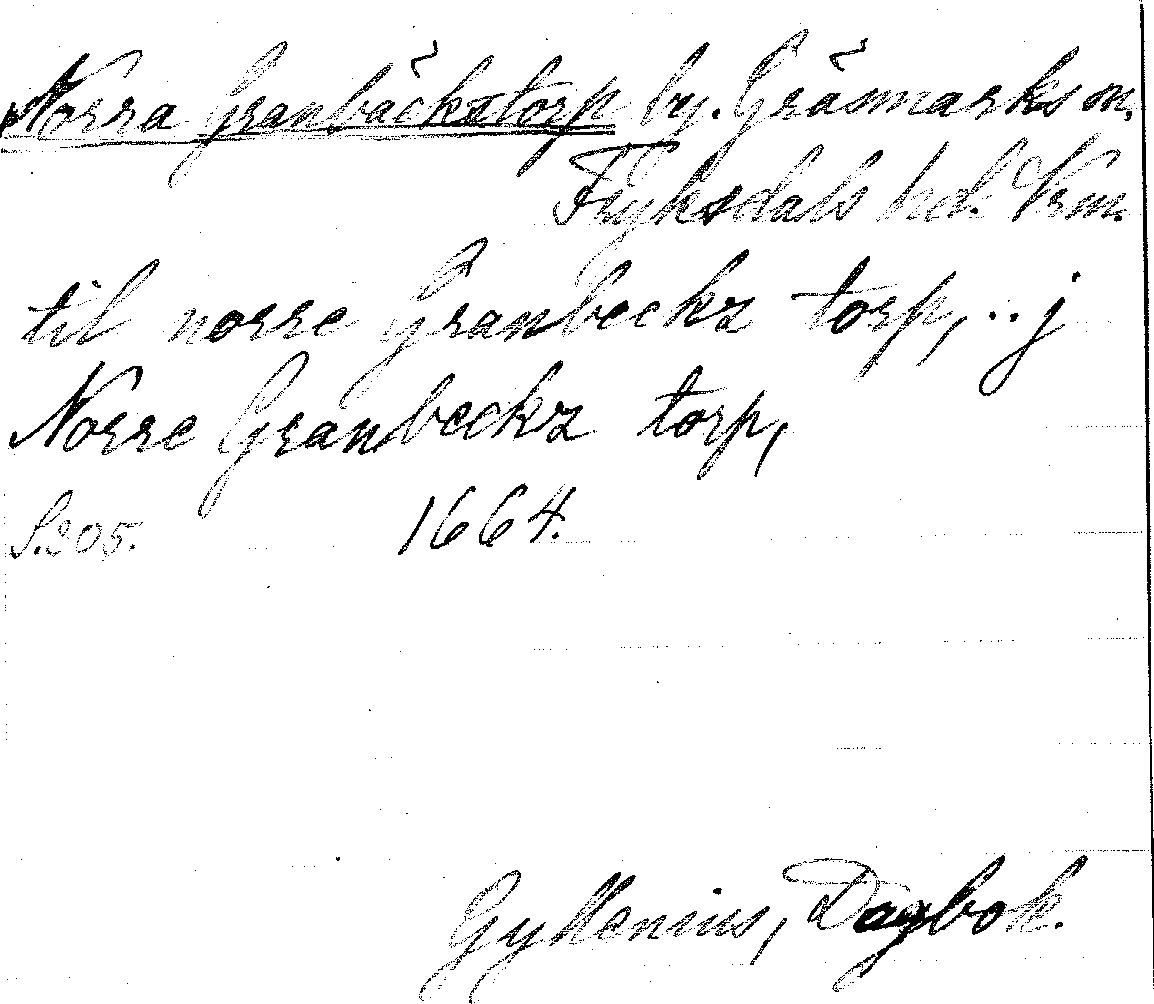 Norra Granbäckstorp by. Gräsmarks sn.
Fryksdals hd. Vrm.
til norre Granbeckz torp, .. j
Norre Granbeckz torp,
S. 205. 1664.
Gyllenius, Dagbok.